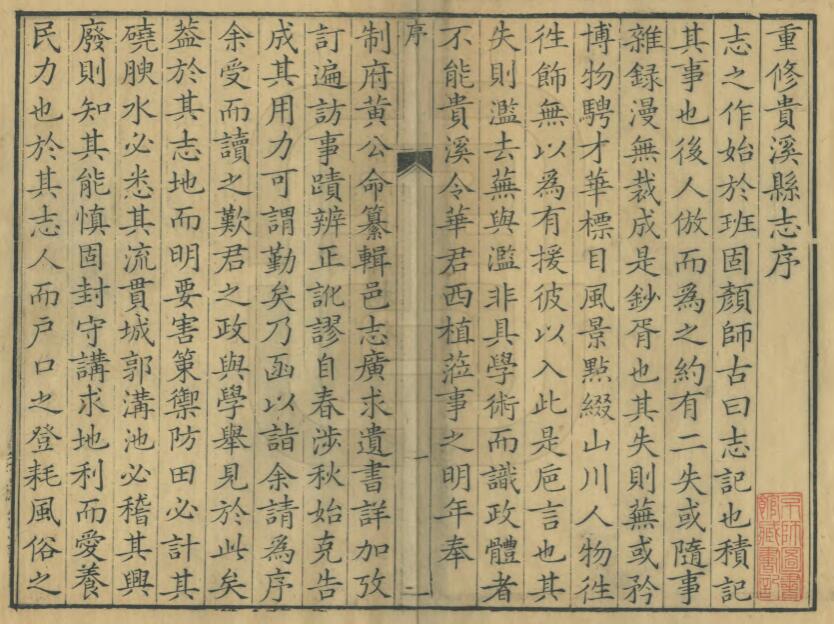 重修貴溪縣志序
志之作始於班固顏師古曰志記也積記
其事也後人倣而為之約有二失或隨事
雜録漫無裁成是鈔胥也其失則蕪或矜
博物騁才華標目風景點綴山川人物徃
徃飾無以為有援彼以入此是巵言也其
失則濫去蕪與濫非具學術而識政體者
不能貴溪令華君西植蒞事之明年奉
序
一
制府黄公命纂輯邑志廣求遺書詳加攷
訂遍訪事蹟辨正訛謬自春涉秋始克告
成其用力可謂勤矣乃函以詣余請為序
余受而讀之歎君之政與學舉見於此矣
葢於其志地而明要害策禦防田必計其
磽腴水必悉其流貫城郭溝池必稽其興
廢則知其能慎固封守講求地利而愛養
民力也於其志人而戸口之登耗風俗之